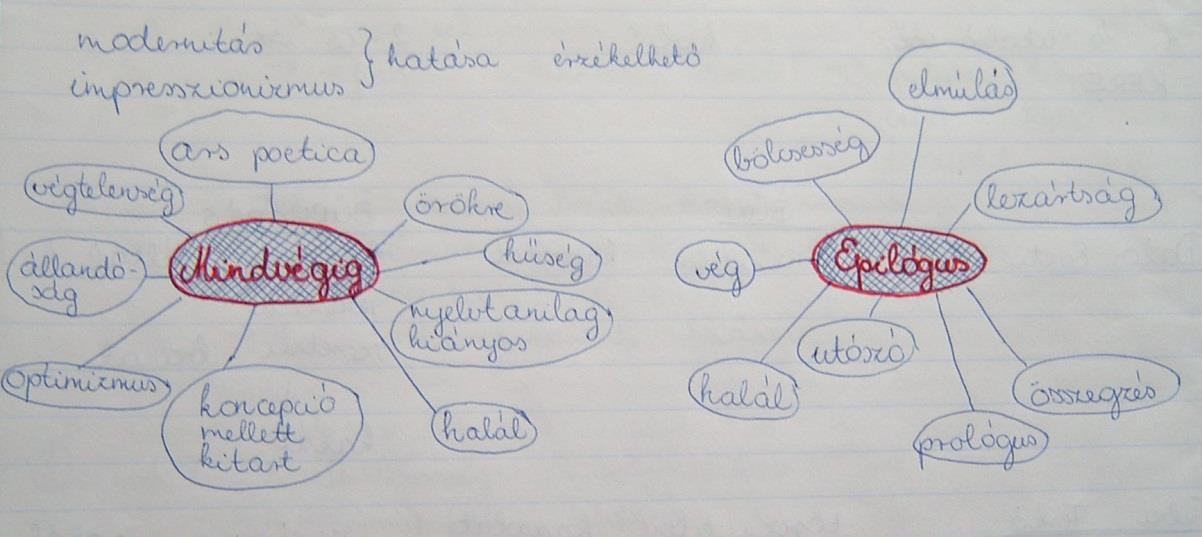 modernitás
impresszionizmus } hatása érzékelhető
ars poetica
végtelenség
örökre
Mindvégig
hűség
állandó-
ság
nyelvtanilag
hiányos
optimizmus
koncepció
mellett
kitart
halál
elmúlás
bölcsesség
lezártság
Epilógus
vég
utószó
halál
összegzés
prológus